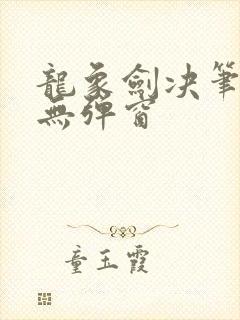 龍象劍决筆
無彈窗
童玉霞